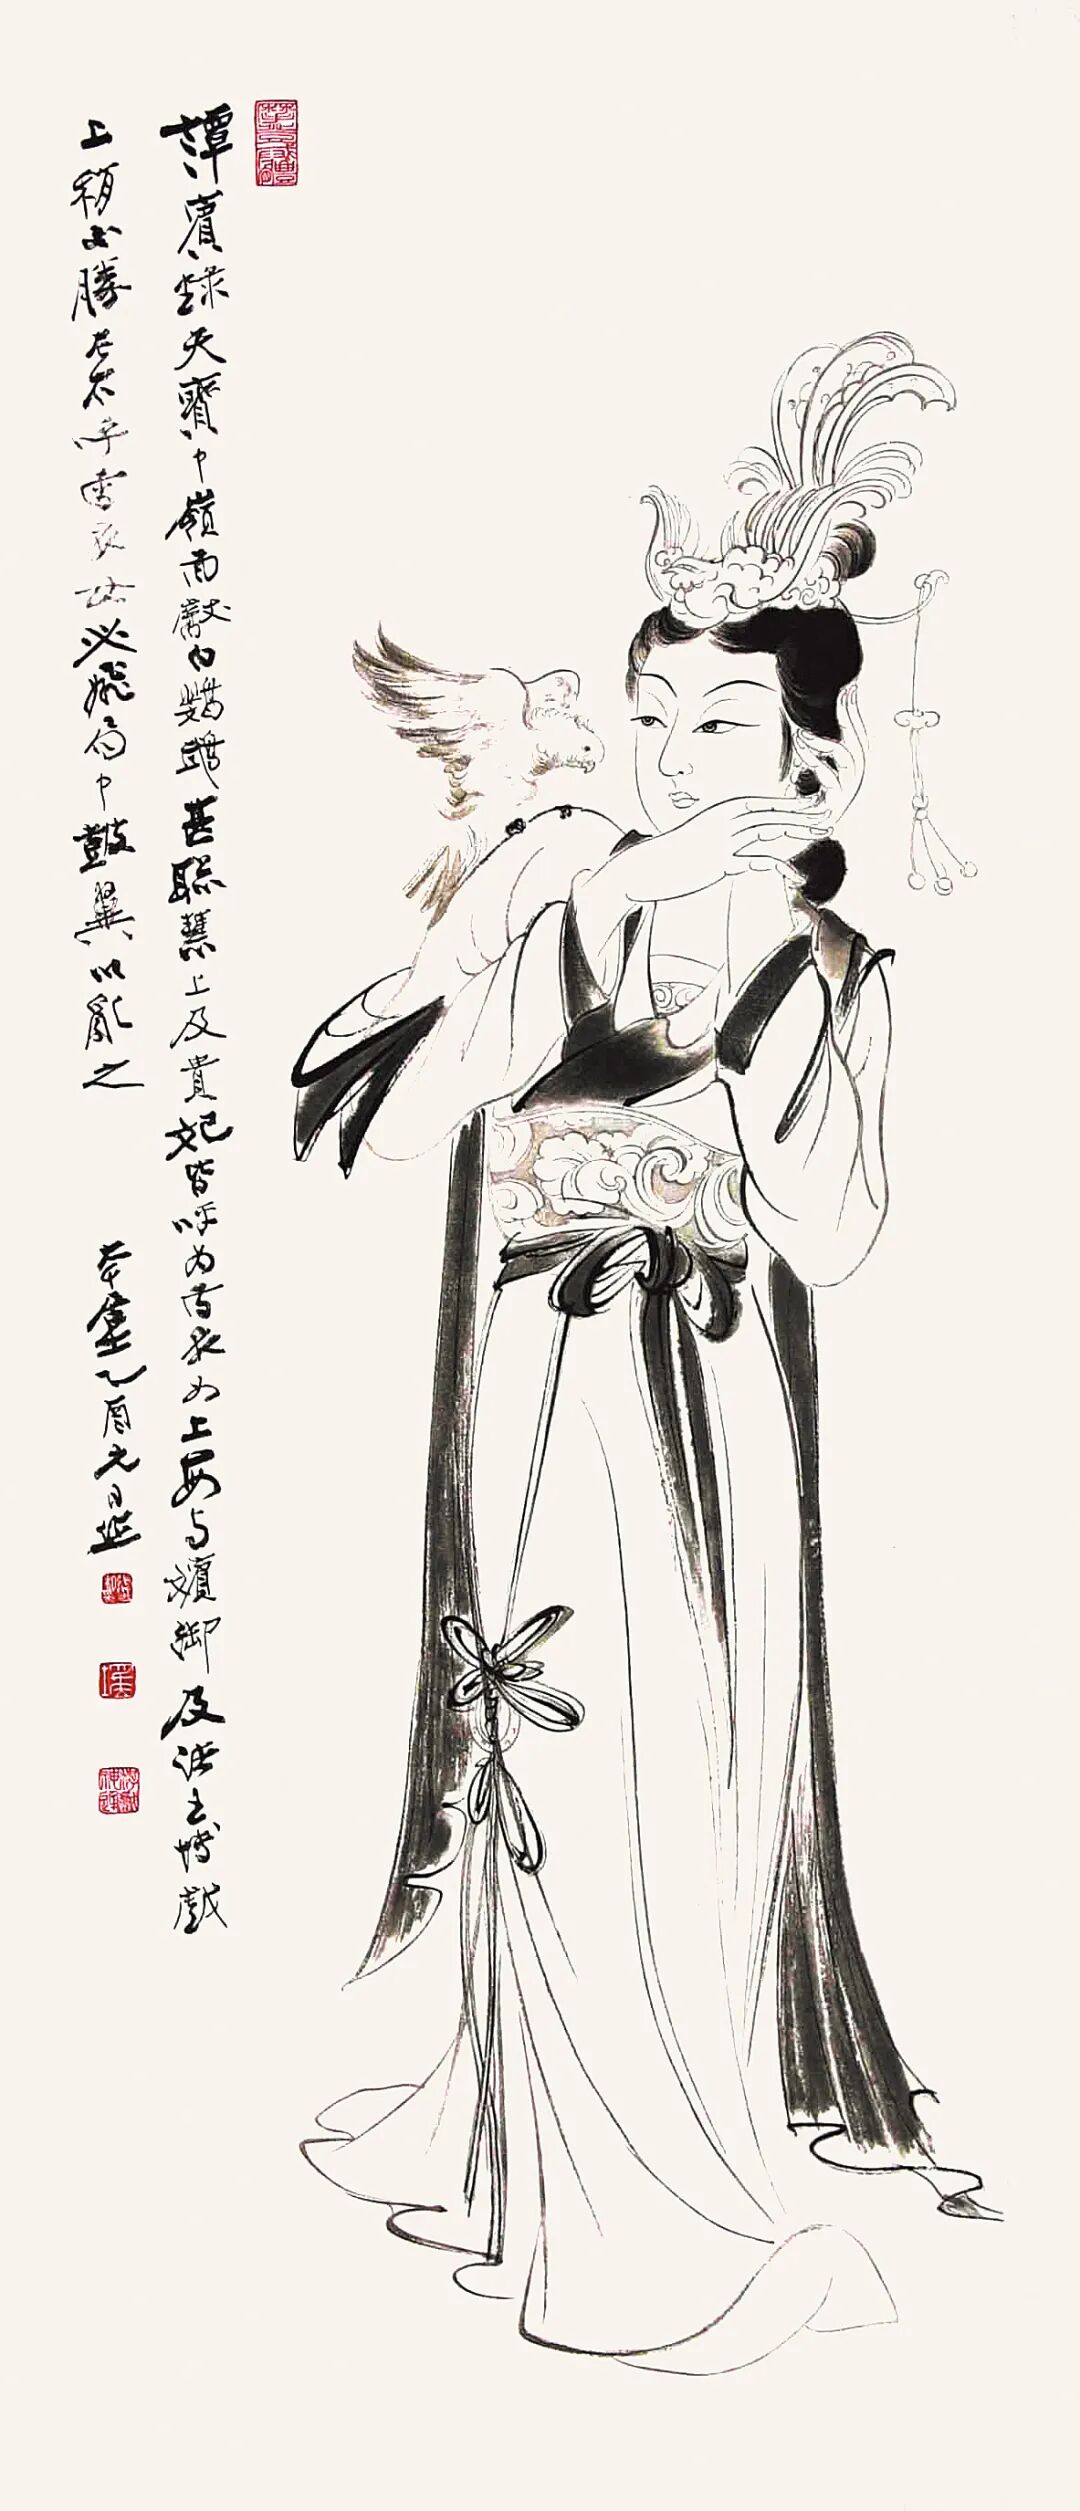 譚賓錄天寶中嶺南獻白鸚鵡甚聰慧上及貴妃皆呼為雪衣女上每与嬪御及諸王博戲
上稍不勝左右呼雪衣女必飛局中鼓翼以亂之
乙酉元月